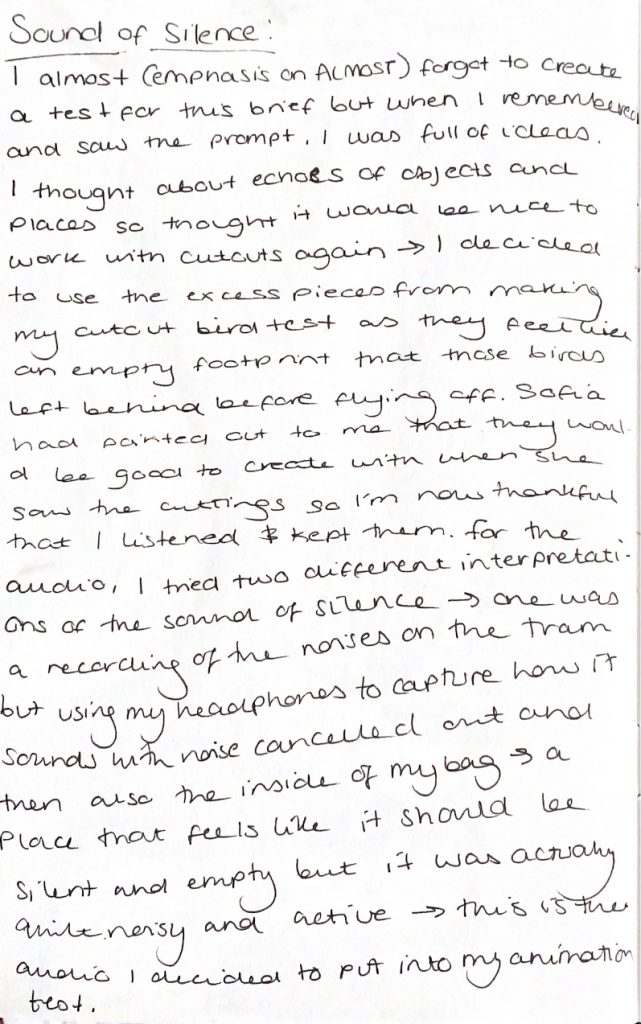 Sound of Silence:
I almost (emphasis on ALMOST) forgot to create
a test for this brief but when I remembered
and saw the prompt, I was full of ideas.
I thought about echoes of objects and
places so thought it would be nice to
work with cutouts again → I decided
to use the excess pieces from making
my cutout bird test as they feel like
an empty footprint that those birds
left behind before flying off. Sofia
had pointed out to me that they woul-
d be good to create with when she
saw the cuttings so I'm now thankful
that I listened & kept them. for the
audio, I tried two different interpretati-
ons of the sound of silence → one was
a recording of the noises on the tram
but using my headphones to capture how it
sounds with noise cancelled out and
then also the inside of my bag → a
place that feels like it should be
silent and empty but it was actually
quite noisy and active → this is the
audio I decided to put into my animation
test.